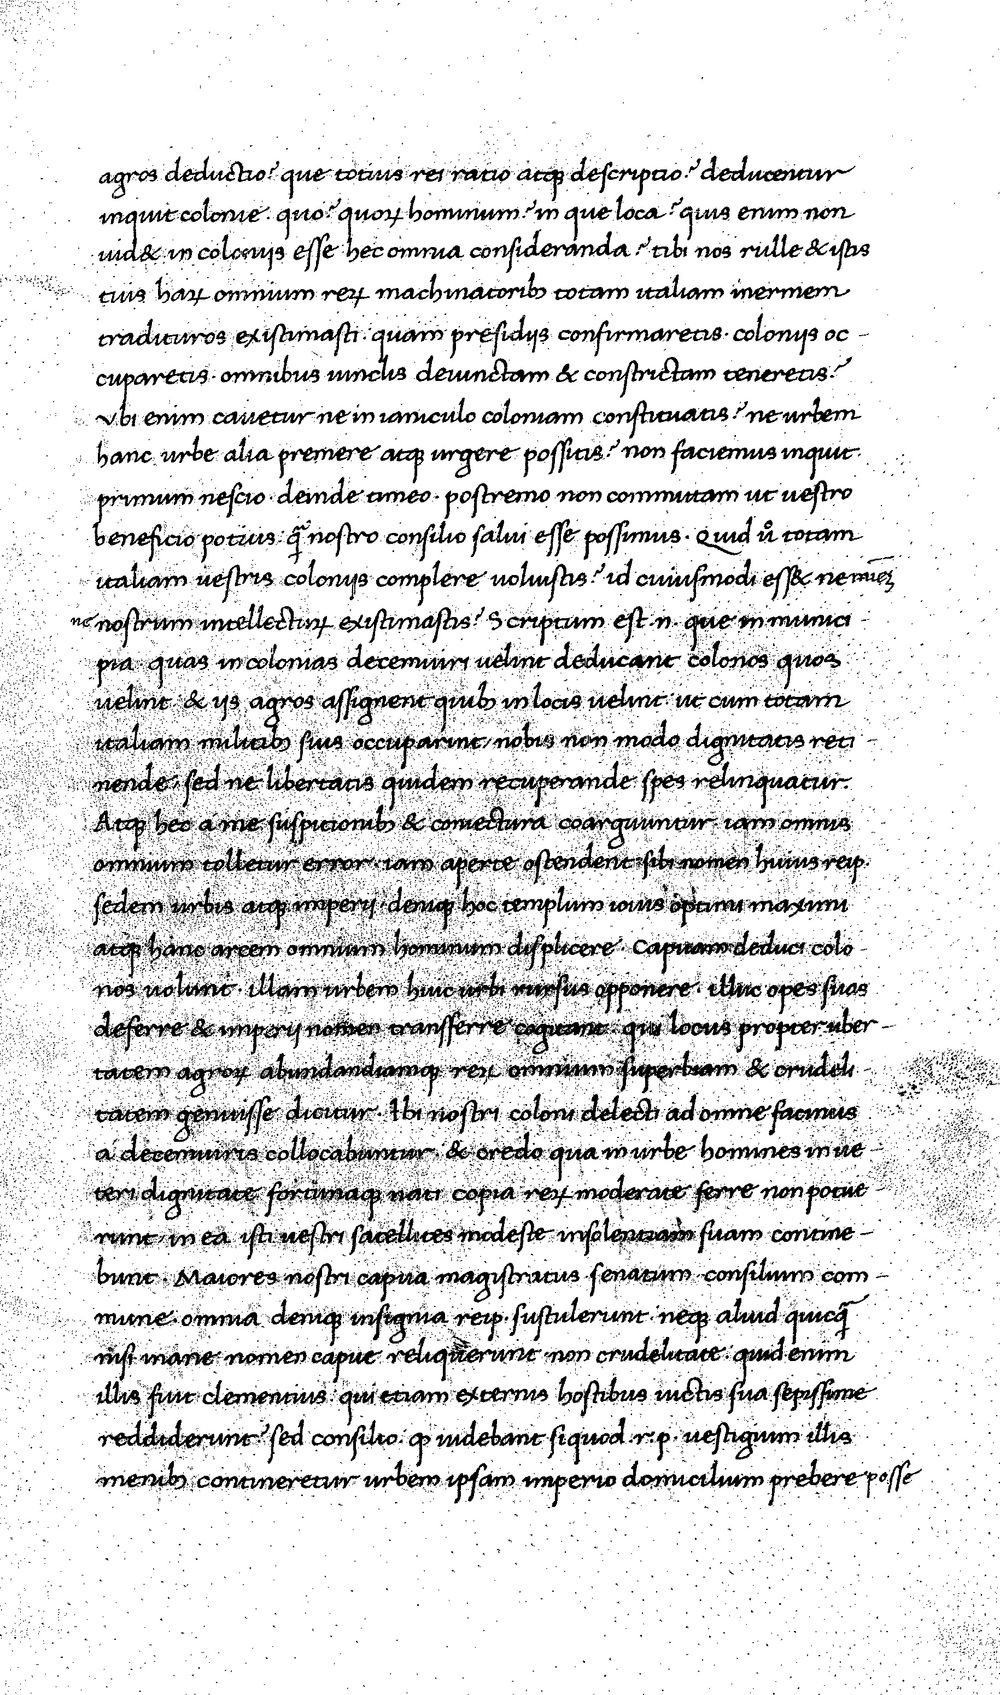 agros deductio? que totius rei ratio atqꝫ descriptio? deducentur
inquit colonie. quo? quoꝝ hominum? in que loca? quis enim non
uid& in colonijs esse hec omnia consideranda? tibi nos rulle & istis
tuis haꝝ omnium reꝝ machinatoribꝫ totam italiam inermem
tradituros existimasti. quam presidijs confirmaretis. colonijs oc-
cuparetis. omnibus uinclis deiunctam & constrictam teneretis?
Vbi enim cauetur ne in ianiculo coloniam constituatis? ne urbem
hanc urbe alia premere atqꝫ urgere possitis? non faciemus inquit.
primum nescio. deinde timeo. postremo non commutam ut uestro
beneficio potius. q̃ nostro consilio salui esse possimus. Quid u͛ totam
italiam uestris colonijs complere uoluistis? id cuiusmodi ess& nemĩez
ne nostrum intellectuꝝ existimastis? Scriptum est .n. que in munici-
pia. quas in colonias decemuiri uelint deducant colonos quos
uelint. & ijs agros assignent quibꝫ in locis uelint. ut cum totam
italiam militibꝫ suis occuparint, nobis non modo dignitatis reti-
nende, sed ne libertatis quidem recuperande spes relinquatur.
Atqꝫ hec a me suspitionibꝫ & coniectura coarguuntur. iam omnis
omnium tolletur error. iam aperte ostendent sibi nomen huius reip.
sedem urbis atqꝫ imperij. deniqꝫ hoc templum iouis optimi maximi
atqꝫ hanc arcem omnium hominum displicere. Capuam deduci colo-
nos uolunt. illam urbem huic urbi rursus opponere. illuc opes suas
deferre & imperij nomen transferre cogitant. qui locus propter uber-
tatem agroꝝ abundandiamqꝫ reꝝ omnium superbiam & crudeli-
tatem genuisse dicitur. Ibi nostri coloni delecti ad omne facinus
a decemuiris collocabuntur. & credo qua in urbe homines in ue-
teri dignitate fortunaqꝫ nati copia reꝝ moderate ferre non potue-
runt, in ea isti uestri satellites modeste insolentiam suam contine-
bunt. Maiores nostri capua magistratus senatum consilium com-
mune. omnia deniqꝫ insignia reip. sustulerunt. neqꝫ aliud quicq̃
nisi inane nomen capue reliquerunt. non crudelitate. quid enim
illis fuit clementius. qui etiam externis hostibus uictis sua sepissime
reddiderunt? sed consilio. ꝙ uidebant siquod .r.p. uestigium illis
menibꝫ contineretur urbem ipsam imperio domicilium prebere posse